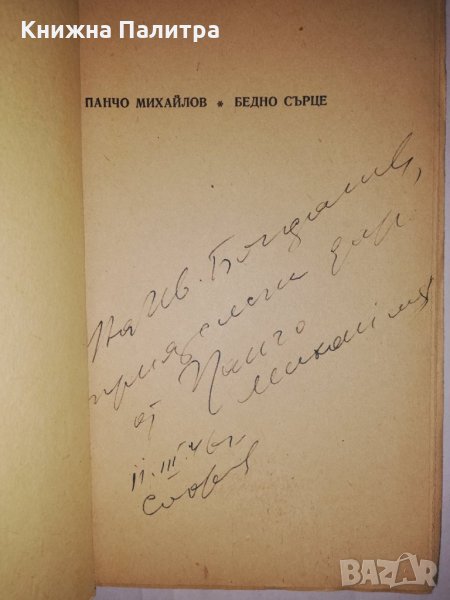 Книжна Палитра
ПАНЧО МИХАЙЛОВ * БЕДНО СЪРЦЕ
На Ив. Богданов,
приятелски дар
от Панчо
Михайлов
11.III.46 г.
София
BAZAR